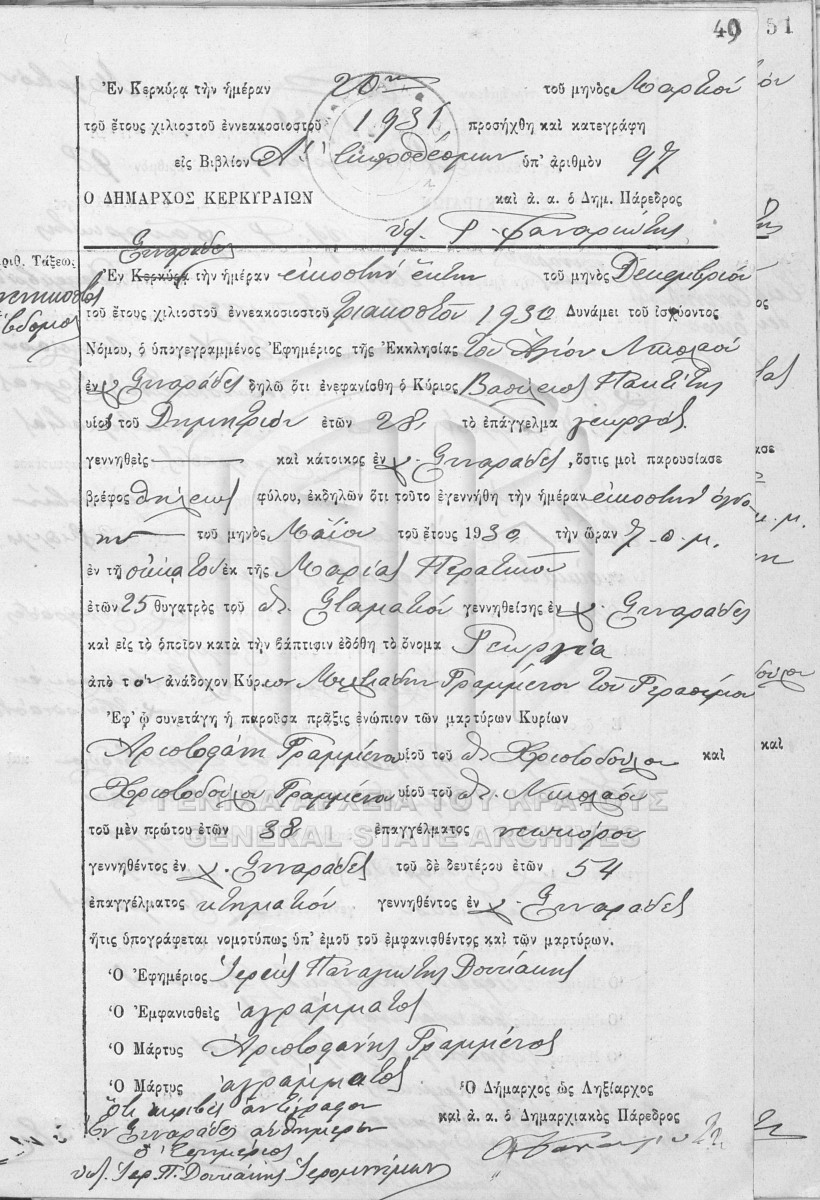 49 51
Ἐν Κερκύρᾳ τὴν ἡμέραν 20ην τοῦ μηνὸς Μαρτίου
τοῦ ἔτους χιλιοστοῦ ἐννεακοσιοστοῦ 1931 προσήχθη καὶ κατεγράφη
εἰς Βιβλίον Λ' ἐκπροθέσμων ὑπ' ἀριθμὸν 97
Ο ΔΗΜΑΡΧΟΣ ΚΕΡΚΥΡΑΙΩΝ καὶ ἀ. α. ὁ Δημ. Πάρεδρος
Φαναριώτης
Σιναράδες
Ἐν Κερκύρᾳ τὴν ἡμέραν εἰκοστὴν ἕκτην τοῦ μηνὸς Δεκεμβρίου
τοῦ ἔτους χιλιοστοῦ ἐννεακοσιοστοῦ τριακοστοῦ 1930 Δυνάμει τοῦ ἰσχύοντος
Νόμου, ὁ ὑπογεγραμμένος Ἐφημέριος τῆς Ἐκκλησίας τοῦ Ἁγίου Νικολάου
ἐν χ. Σιναράδες δηλῶ ὅτι ἐνεφανίσθη ὁ Κύριος Βασίλειος
υἱὸς τοῦ Δημητρίου ἐτῶν 28 τὸ ἐπάγγελμα γεωργός
γεννηθεὶς καὶ κάτοικος ἐν χ. Σιναράδες, ὅστις μοὶ παρουσίασε
βρέφος θήλεως φύλου, ἐκδηλῶν ὅτι τοῦτο ἐγεννήθη τὴν ἡμέραν εἰκοστὴν ὀγδό
ην τοῦ μηνὸς Μαΐου τοῦ ἔτους 1930 τὴν ὥραν 7 π.μ.
ἐν τῇ οἰκίᾳ του ἐκ τῆς Μαρίας
ἐτῶν 25 θυγατρὸς τοῦ Σταματίου γεννηθείσης ἐν χ. Σιναράδες
καὶ εἰς τὸ ὁποῖον κατὰ τὴν βάπτισιν ἐδόθη τὸ ὄνομα Γεωργία
ἀπὸ τὸν ἀνάδοχον Κύριον Μιλτιάδην Γραμμένον τοῦ Γερασίμου
Ἐφ' ᾧ συνετάγη ἡ παροῦσα πρᾶξις ἐνώπιον τῶν μαρτύρων Κυρίων
Ἀριστοφάνη Γραμμένου υἱοῦ τοῦ Χριστοδούλου καὶ
Χριστοδούλου Γραμμένου υἱοῦ τοῦ Νικολάου
ΓΕΝΙΚΑ ΑΡΧΕΙΑ ΤΟΥ ΚΡΑΤΟΥΣ
τοῦ μὲν πρώτου ἐτῶν 38 ἐπαγγέλματος νεωκόρου
GENERAL STATE ARCHIVES
γεννηθέντος ἐν χ. Σιναράδες τοῦ δὲ δευτέρου ἐτῶν 54
ἐπαγγέλματος κτηματίου γεννηθέντος ἐν χ. Σιναράδες
ἥτις ὑπογράφεται νομοτύπως ὑπ' ἐμοῦ τοῦ ἐμφανισθέντος καὶ τῶν μαρτύρων.
Ὁ Ἐφημέριος Ἱερεὺς Παναγιώτης Δουκάκης
Ὁ Ἐμφανισθεὶς ἀγράμματος
Ὁ Μάρτυς Ἀριστοφάνης Γραμμένος
Ὁ Μάρτυς ἀγράμματος
Ὁ Δήμαρχος ὡς Ληξίαρχος
καὶ ἀ. α. ὁ Δημαρχιακὸς Πάρεδρος
Ὅτι ἀκριβὲς ἀντίγραφον
Ἐν Σιναράδες αὐθημερόν
ὁ Ἐφημέριος